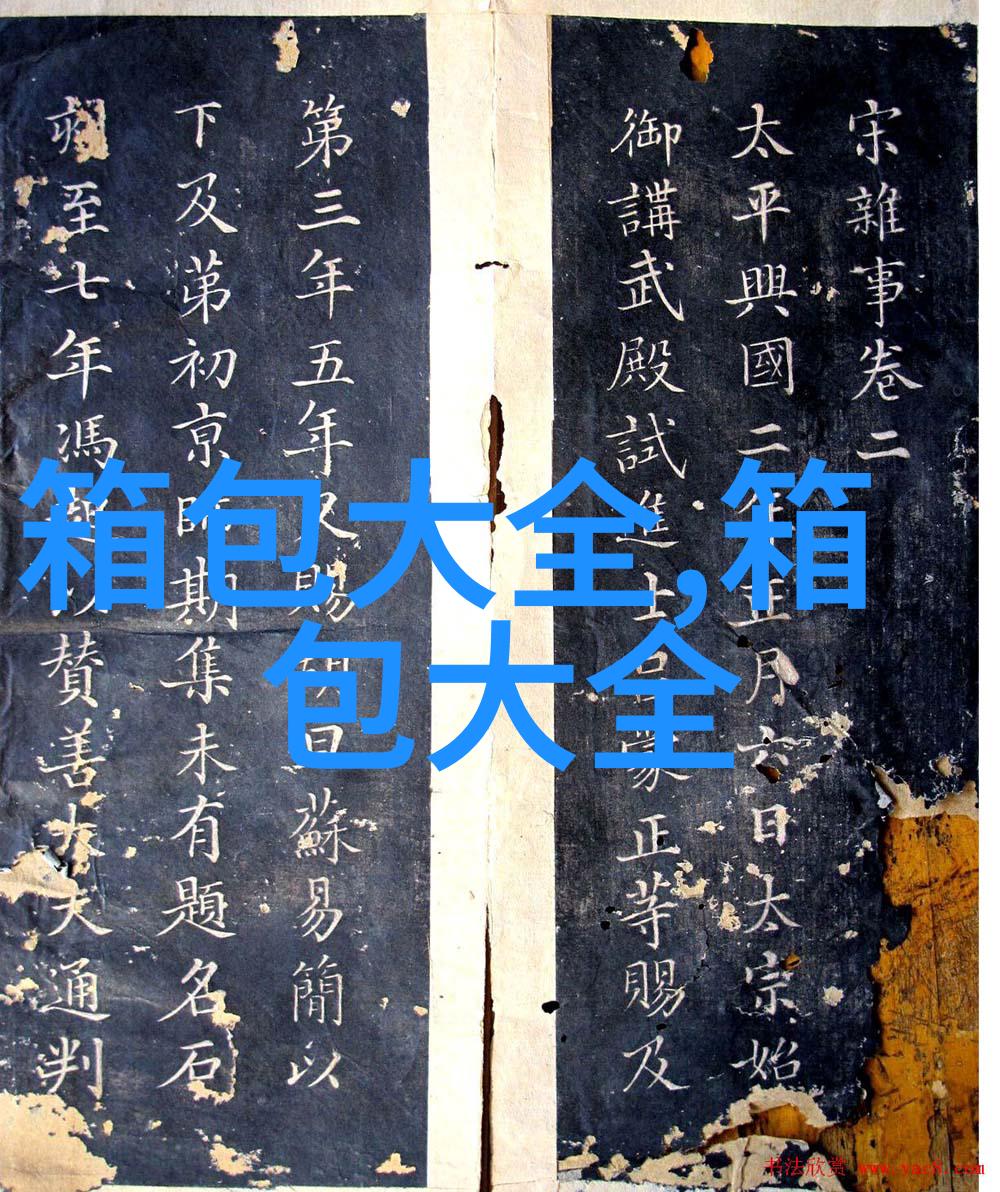 宋雜事卷二
太平興國二年正月六日太宗始
御講武殿試進士呂蒙正等賜及
第三年五年又賜
蘇易簡以
下及第初京師期集未有題名石
刻至七年馮
贊善大夫通判
箱包大全,箱
包大全
书法欣赏 www.yac8.com